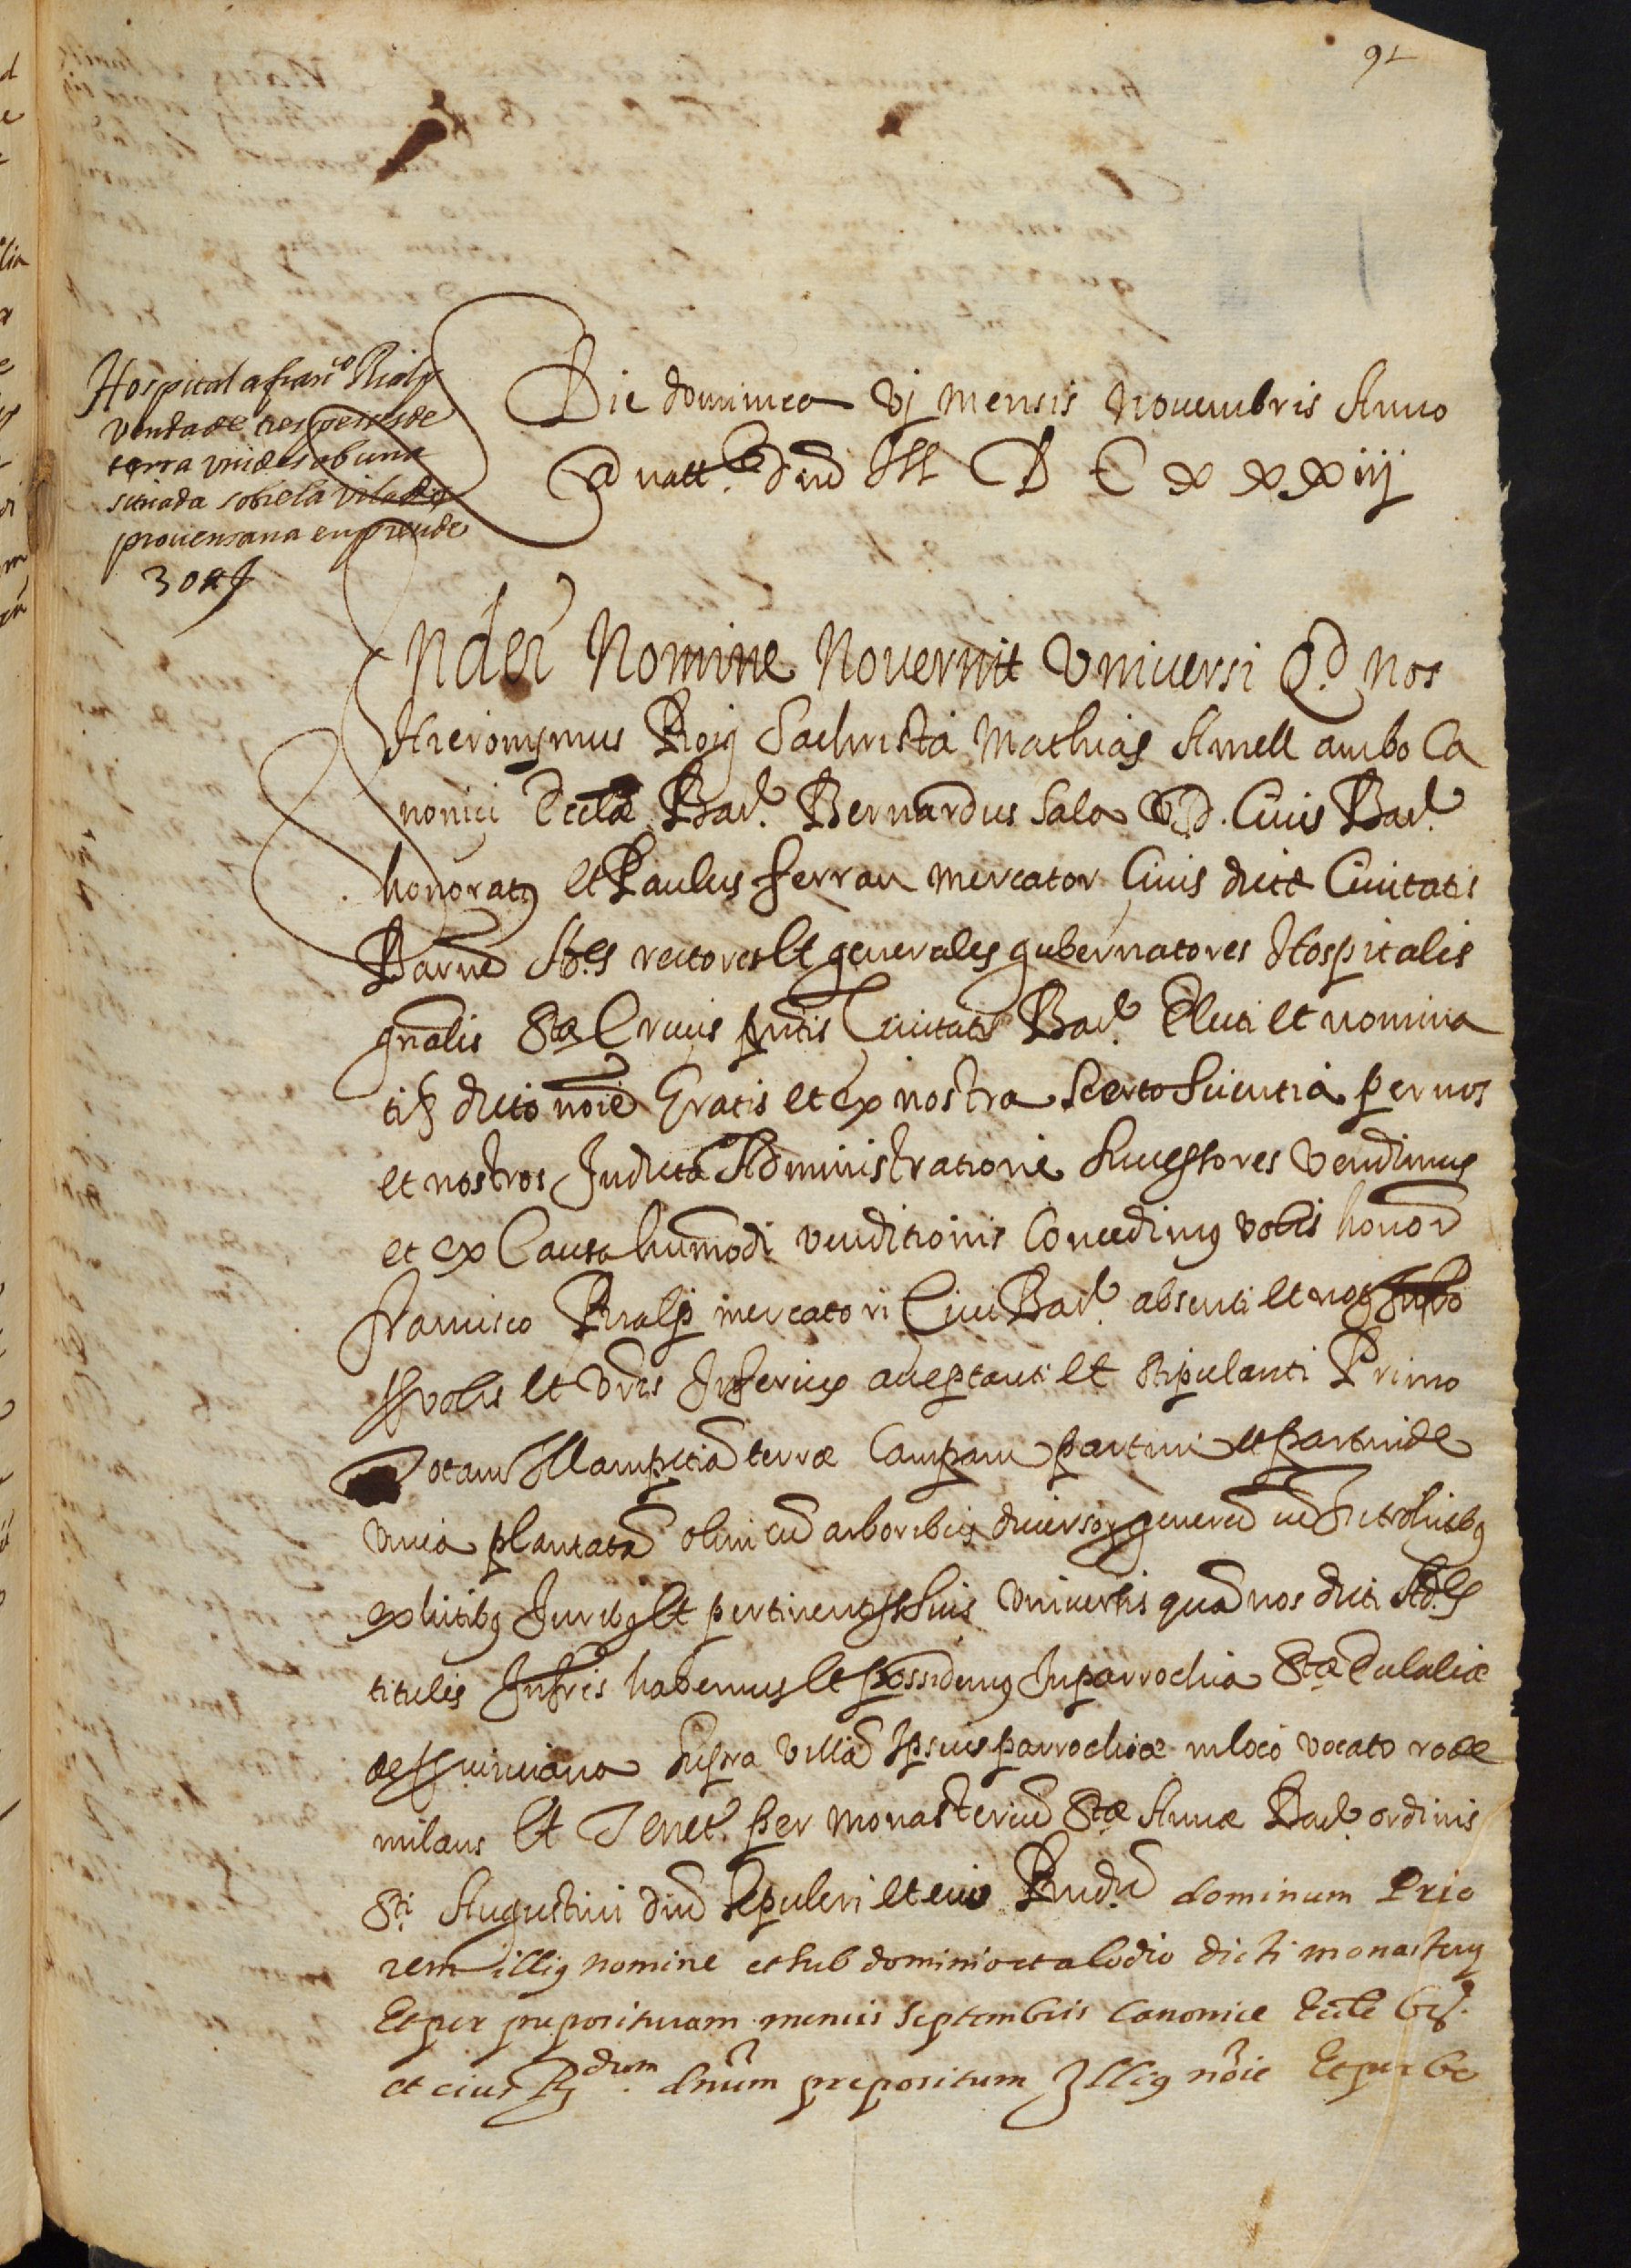 91
Hospital a franco Rialp
venda de tres pesses de
terra unides ab una
sitiada sobre la vila de
provensana en preu de
Die dominica vj mensis Novembris Anno
a natt.e dnd M D C x x x iiij
In dei Nomine Noverint Universi Qd. nos
Hieronymus Roig Sachrista Mathias Amell ambo Ca
nonici Eccle Bar. Bernardus Sala U.J.D. Civis Bar.
honoratq et Paulus ferran mercator Civis dicte Civitatis
Barne Ad.es rectores et generales gubernatores Hospitalis
gnalis Stae Crucis pntis Civitatis Bar. Electi et nomina
ti dicto noie Gratis et ex nostra Certa Scientia per nos
et nostros In dicta Administratione Successores vendimus
et ex Causa humodi venditionis Concedimq vobis honor
francisco Rialp mercatori Civi Bar. absenti et notq
vobis et vris Inferius acceptanti et stipulanti Primo
Totam Illam petia terrae Campam partim et partim de
vinea plantata olim cu arboribus diversor generu cu Introhitibq
exhitibq Juribq et pertinentijs Suis Universis qua nos dicti Ad.es
titulis Infris habemus et possidemq In parrochia Stae Eulaliae
de supra villa Ipsius parrochiae in loco vocato rode
milans Et Tenet. per monasteriu Stae Annae Bar. ordinis
Sti Augustini dni Sepulcri et eius Rndu. dominum Prio
rem illiq nomine et sub dominio et alodio dicti monasterij
Et per preposituram mensis Septembris Canonice Eccle Bar.
et eius Rdum. dnum prepositum Illiq noie Et per be